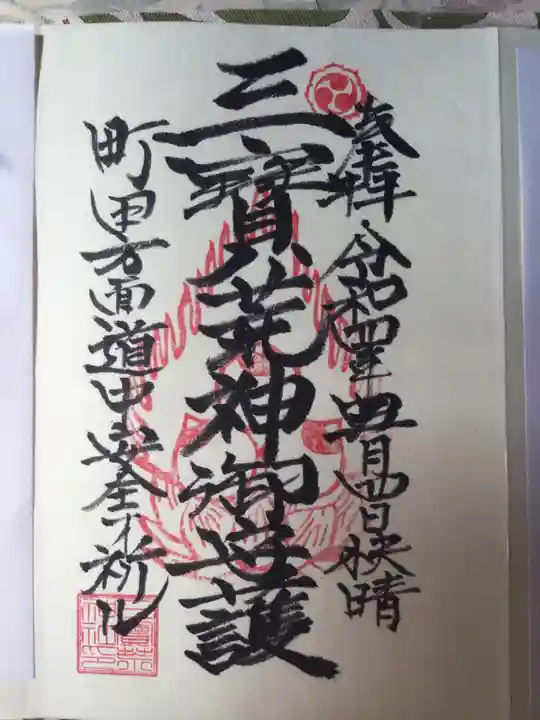 奉拝 令和四年 五月四日 快晴
三寶荒神御守護
町田方面道中安全ヲ祈ル